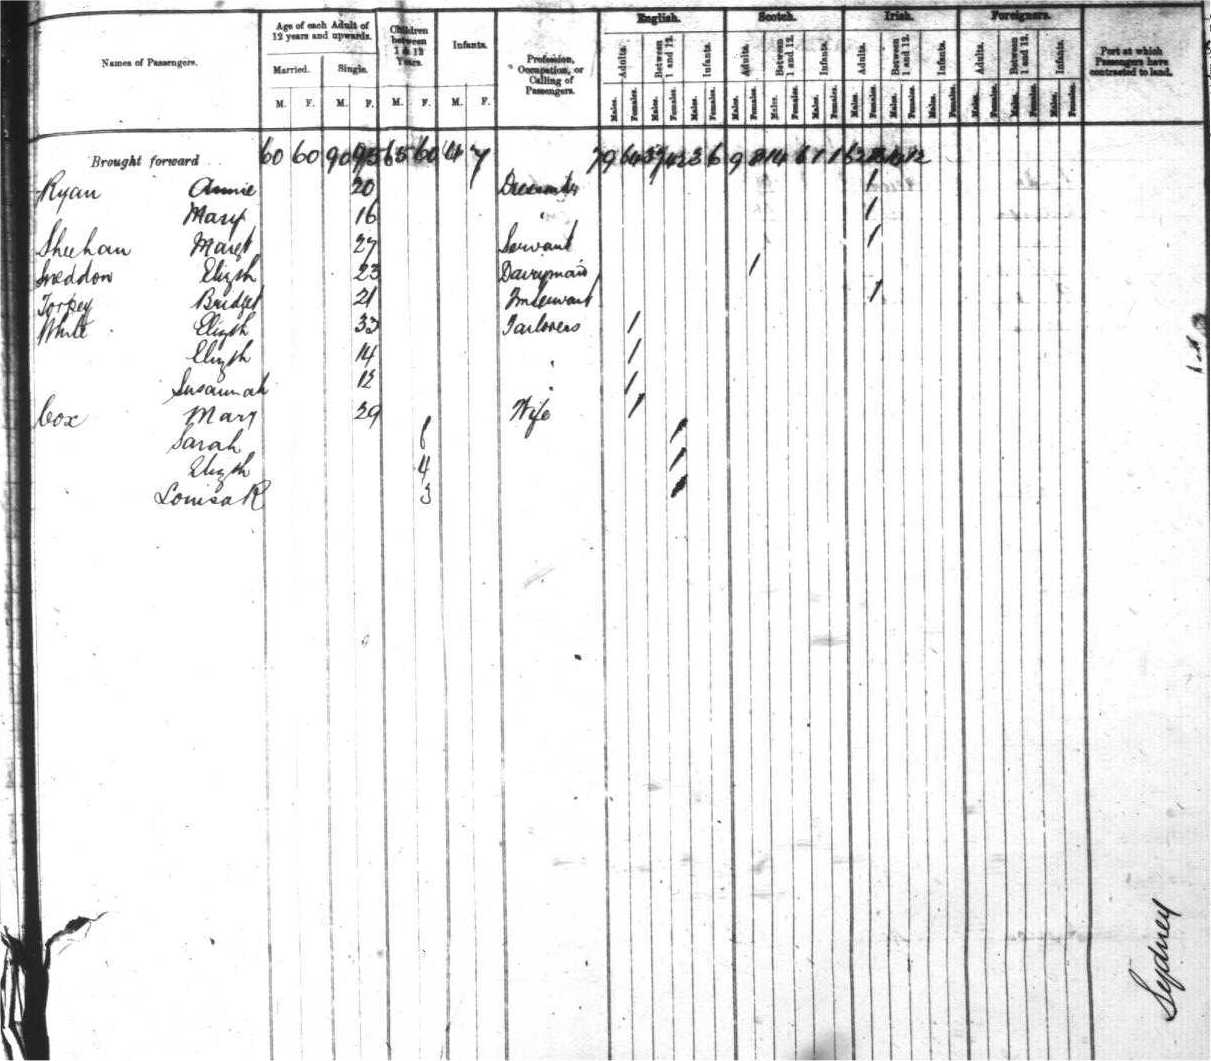 Names of Passengers.
Age of each Adult of 12 years and upwards.
Married. Single.
Children between 1 & 12 Years.
Infants.
Profession, Occupation, or Calling of Passengers.
English. Scotch. Irish. Foreigners.
Adults. Between 1 and 12. Infants. Adults. Between 1 and 12. Infants. Adults. Between 1 and 12. Infants. Adults. Between 1 and 12. Infants.
Port at which Passengers have contracted to land.
M. F. M. F. M. F. M. F. Males. Females. Males. Females. Males. Females. Males. Females. Males. Females. Males. Females. Males. Females. Males. Females. Males. Females. Males. Females. Males. Females. Males. Females.
Brought forward 60 60 90 95 65 60 7 79 64 42 3 6 9 8 14 6 1 1 12
Ryan Annie 20 1
Mary 16 1
Sheehan Margt 27 Servant 1
Sneddon Elizth 23 Dairymaid 1
Torpey Bridget 21 1
White Elizth 33 1
Elizth 14 1
Susannah 12 1
Cox Mary 29 Wife 1
Sarah 6 1
Elizth 4 1
Louisa R 3 1
Sydney